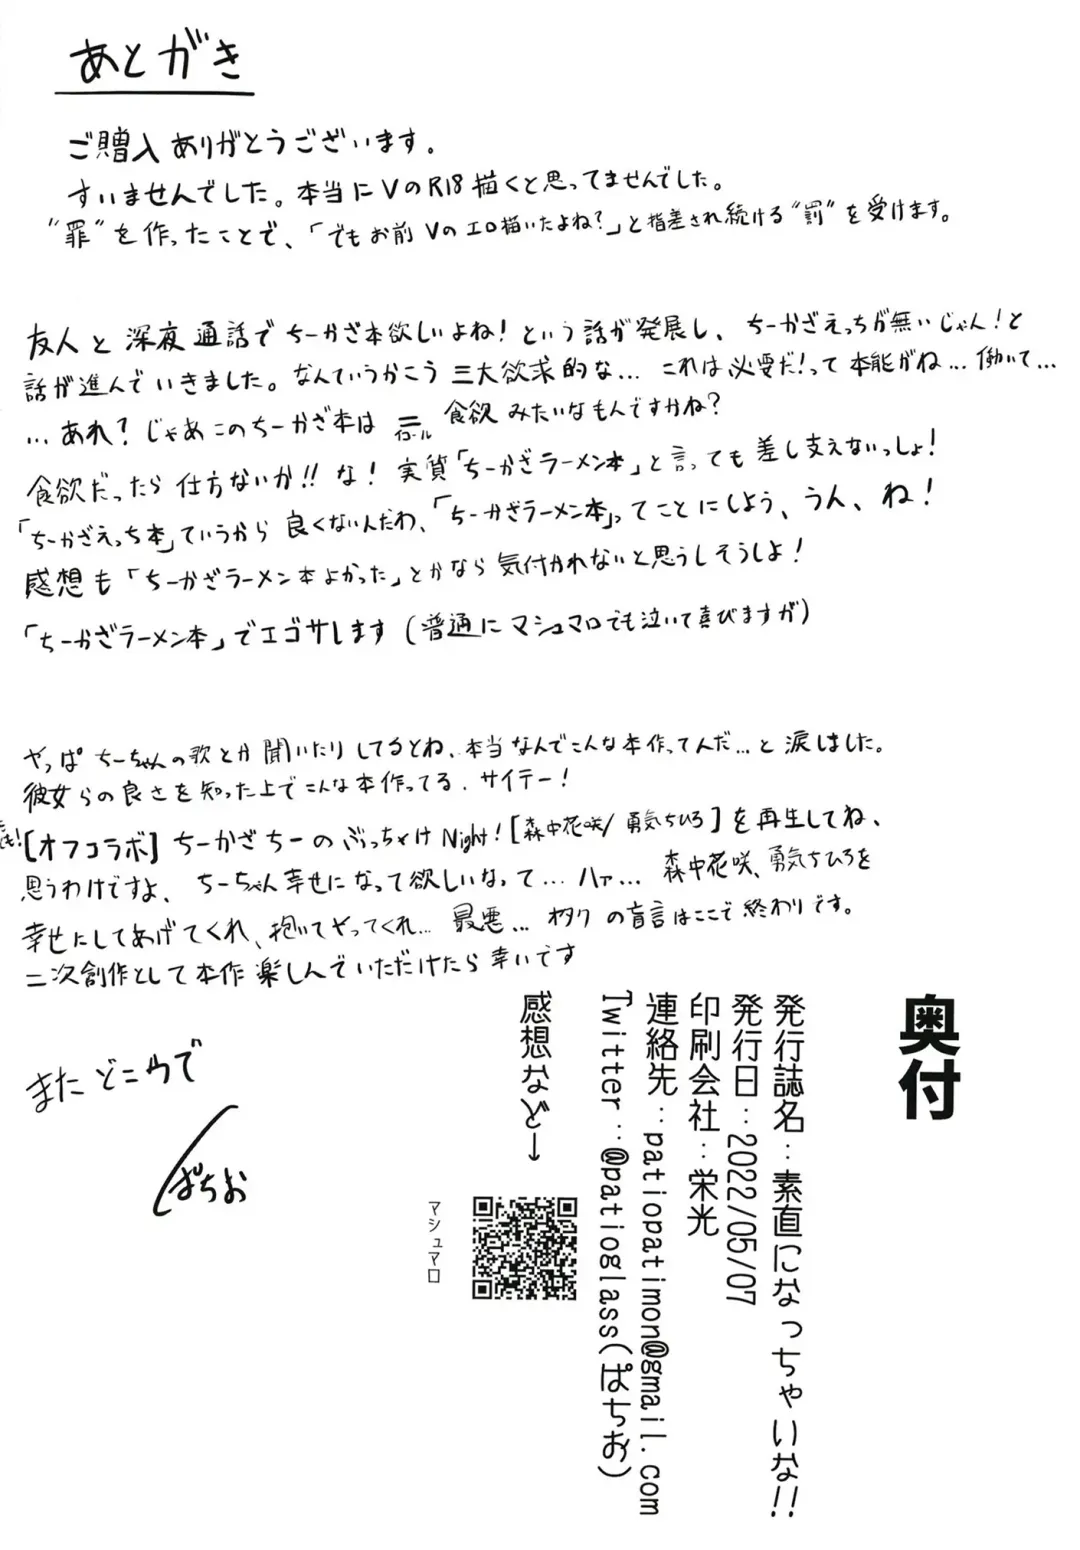 あとがき
ご贈入ありがとうございます。
すいませんでした。本当にVのR18描くと思ってませんでした。
"罪"を作ったことで、「でもお前Vのエロ描いたよね?」と指差され続ける"罰"を受けます。
友人と深夜通話でちーかざ本欲しいよね!という話が発展し、ちーかざえっちが無いじゃん!と
話が進んでいきました。なんていうかこう三大欲求的な… これは必要だ!って本能がね…働いて…
…あれ?じゃあこのちーかざ本は = イコール 食欲みたいなもんですかね?
食欲だったら仕方ないか!!な!実質「ちーかざラーメン本」と言っても差し支えないっしょ!
「ちーかざえっち本」ていうから良くないんだわ、「ちーかざラーメン本」ってことにしよう、うん、ね!
感想も「ちーかざラーメン本よかった」とかなら気付かれないと思うしそうしよ!
「ちーかざラーメン本」でエゴサします(普通にマシュマロでも泣いて喜びますが)
やっぱちーちゃんの歌とか聞いたりしてるとね、本当なんでこんな本作ってんだ…と涙しました。
彼女らの良さを知った上でこんな本作ってる、サイテー!
【オフコラボ】ちーかざちーのぶっちゃけNight!【森中花咲/勇気ちひろ】を再生してね、
思うわけですよ、ちーちゃん幸せになって欲しいなって…ハァ… 森中花咲、勇気ちひろを
幸せにしてあげてくれ、抱いてやってくれ…最悪…オタクの盲言はここで終わりです。
二次創作として本作楽しんでいただけたら幸いです
またどこかで
ぱちお
奥付
発行誌名:素直になっちゃいな!!
発行日:2022/05/07
印刷会社:栄光
連絡先:patiopatimon@gmail.com
Twitter:@patioglass(ぱちお)
感想など→
マシュマロ